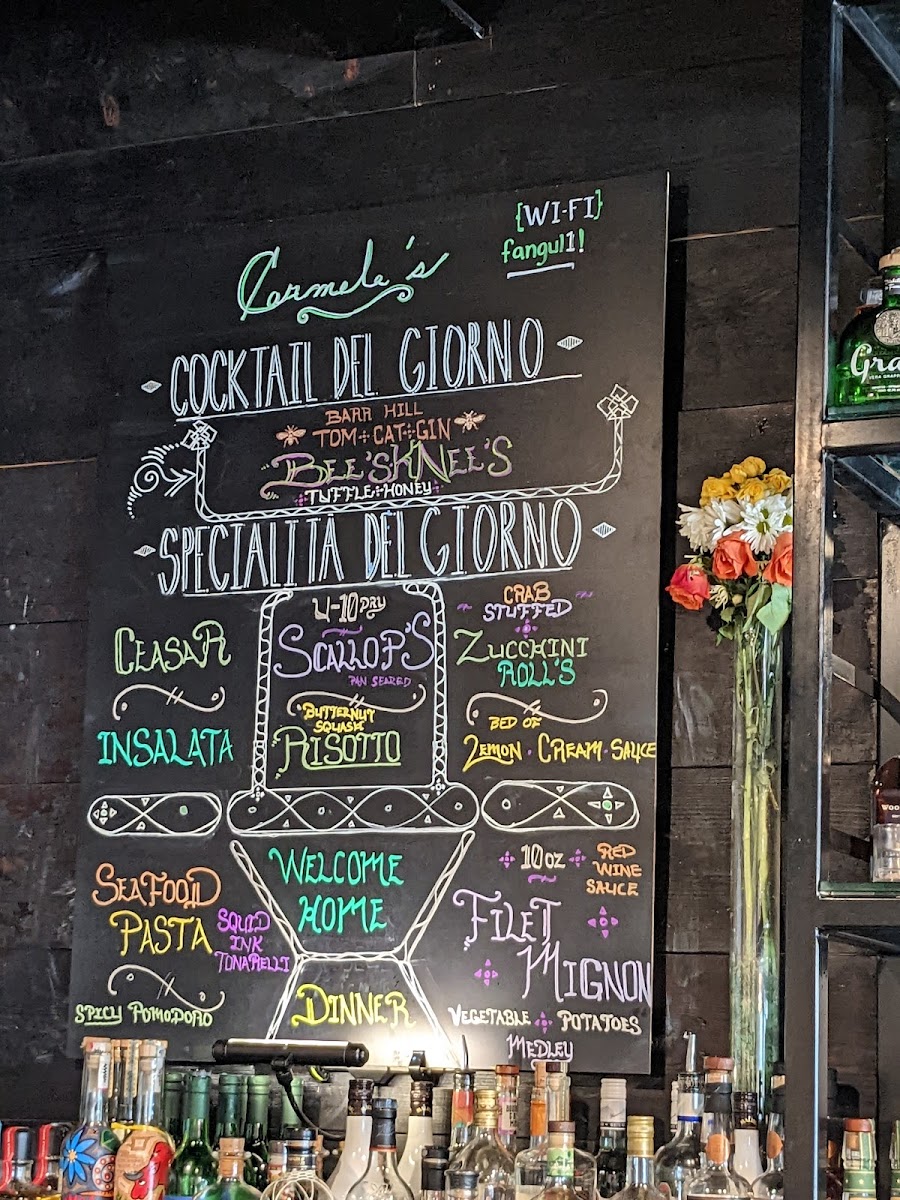 {WI-FI}
fangul1!
Carmela's
COCKTAIL DEL GIORNO
BARR HILL
TOM CAT GIN
BEE'S KNEE'S
TUFFLE HONEY
SPECIALITÁ DEL GIORNO
CEASAR
INSALATA
U-10 DRY
SCALLOP'S
PAN SEARED
BUTTERNUT
SQUASH
RISOTTO
CRAB
STUFFED
ZUCCHINI
ROLL'S
BED OF
LEMON CREAM SAUCE
SEAFOOD
PASTA
SQUID
INK
TONARELLI
SPICY POMODORO
WELCOME
HOME
DINNER
10 OZ
RED
WINE
SAUCE
FILET
MIGNON
VEGETABLE POTATOES
MEDLEY
Gra